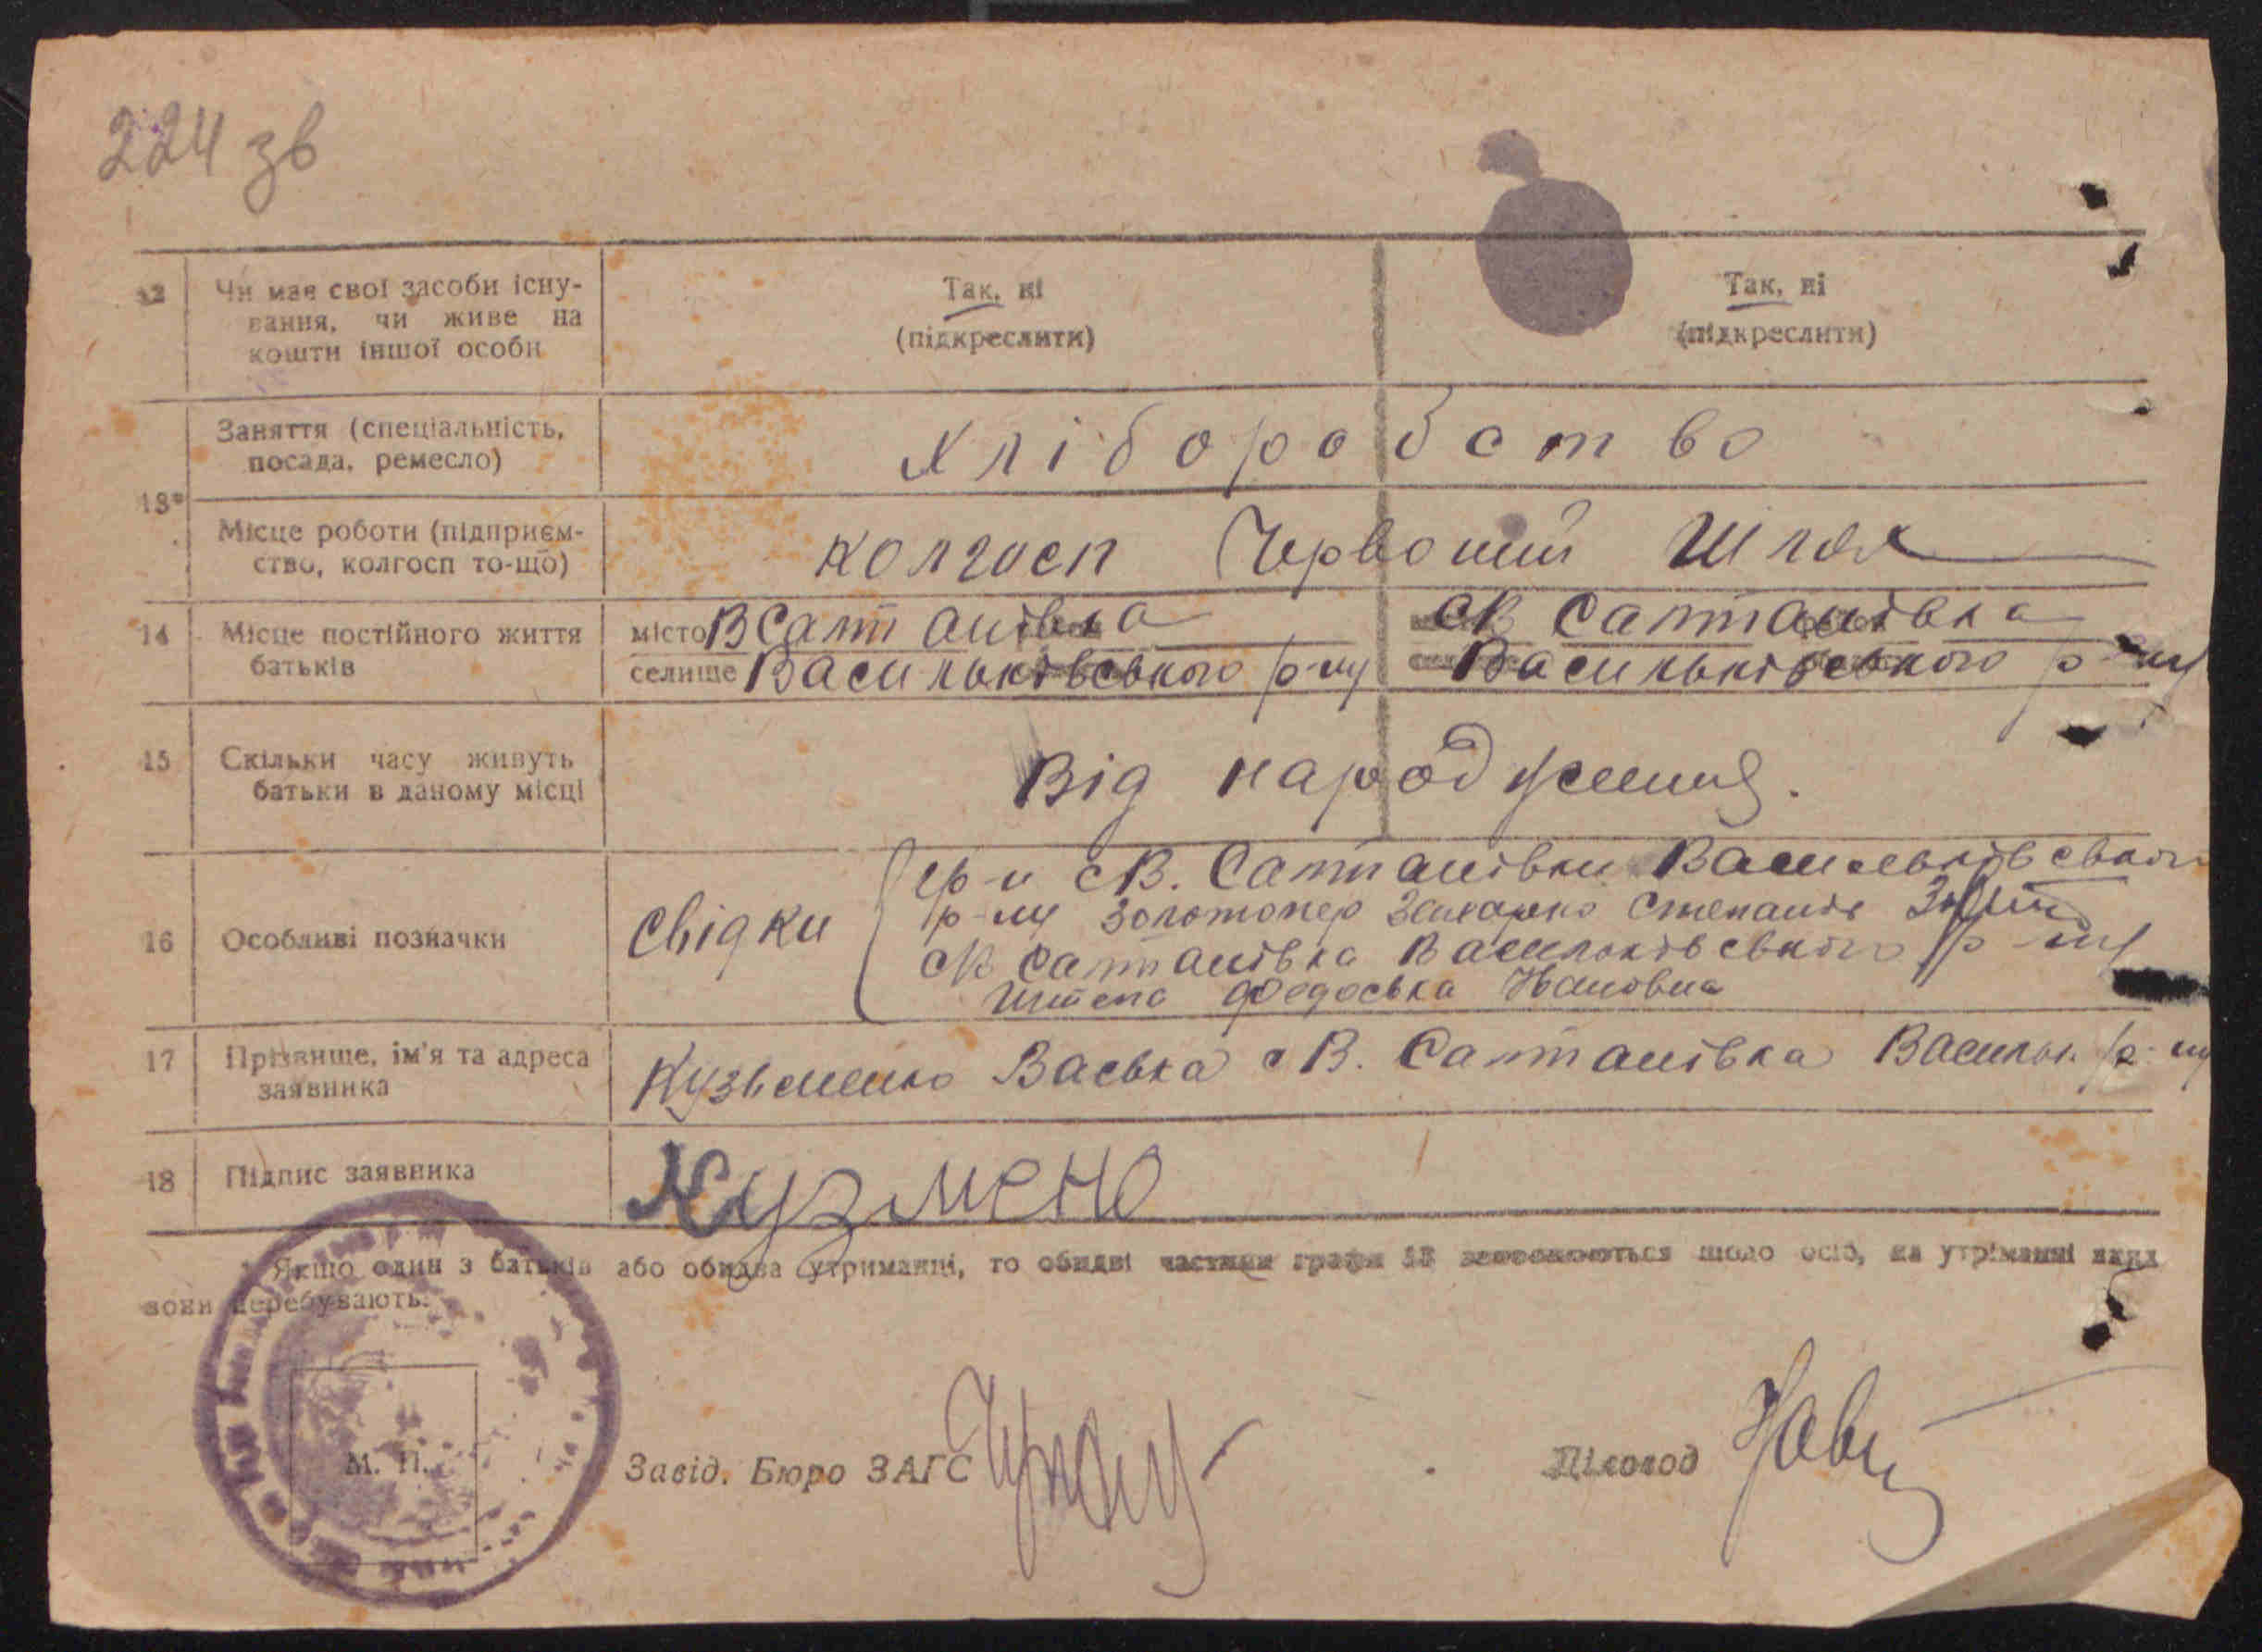 224 зв
12 Чи має свої засоби існу-
вання, чи живе на
кошти іншої особи
Так, ні
(підкреслити)
Так, ні
(підкреслити)
13*
Заняття (спеціальність,
посада, ремесло)
Хліборобство
Місце роботи (підприєм-
ство, колгосп то-що)
колгосп Червоний Шлях
14 Місце постійного життя
батьків
місто В Салтанівка
селище Васильківського р-ну
с В Салтанівка
Васильківського р-ну
15 Скільки часу живуть
батьки в даному місці
Від народження.
16 Особливі позначки
Свідки
гр-н с В. Салтанівки Васильківського
р-ну Золотопер Захарко Степанів
с В Салтанівка Васильківського р-ну
Федоська Івановна
17 Прізвище, ім'я та адреса
заявника
Кузьменко Васька с В. Салтанівка Васильк. р-ну
18 Підпис заявника
Кузмено
* Якщо один з батьків або обидва утриманці, то обидві частини графи 13 заповнюються щодо осіб, на утриманні яких
вони перебувають.
М. П.
Завід. Бюро ЗАГС
Діловод